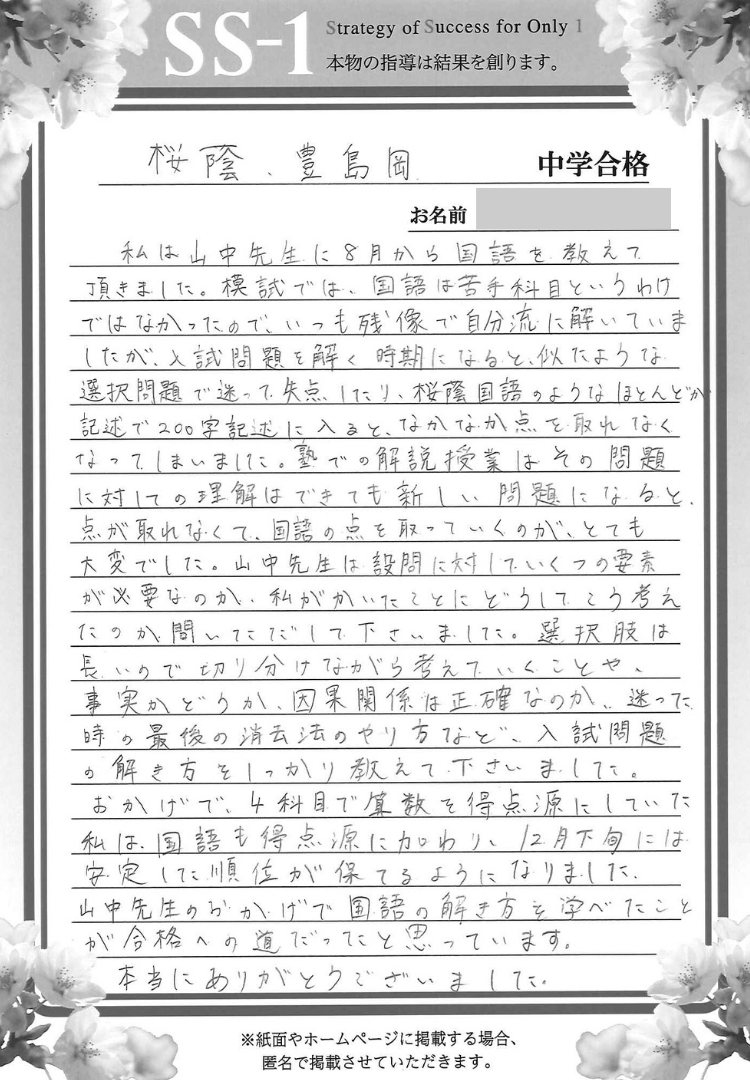 SS-1
Strategy of Success for Only 1
本物の指導は結果を創ります。
桜蔭、豊島岡 中学合格
お名前
私は山中先生に8月から国語を教えて
頂きました。模試では、国語は苦手科目というわけ
ではなかったので、いつも残像で自分流に解いていま
したが、入試問題を解く時期になると、似たような
選択問題で迷って失点したり、桜蔭国語のようなほとんどが
記述で200字記述に入ると、なかなか点を取れなく
なってしまいました。塾での解説授業はその問題
に対しての理解はできても新しい問題になると、
点が取れなくて、国語の点を取っていくのが、とても
大変でした。山中先生は設問に対していくつの要素
が必要なのか、私がかいたことにどうしてこう考え
たのか問いただして下さいました。選択肢は
長いので切り分けながら考えていくことや、
事実かどうか、因果関係は正確なのか、迷った
時の最後の消去法のやり方など、入試問題
の解き方をしっかり教えて下さいました。
おかげで、4科目で算数を得点源にしていた
私は、国語も得点源に加わり、12月下旬には
安定した順位が保てるようになりました。
山中先生のおかげで国語の解き方を学べたこと
が合格への道だったと思っています。
本当にありがとうございました。
※紙面やホームページに掲載する場合、
匿名で掲載させていただきます。